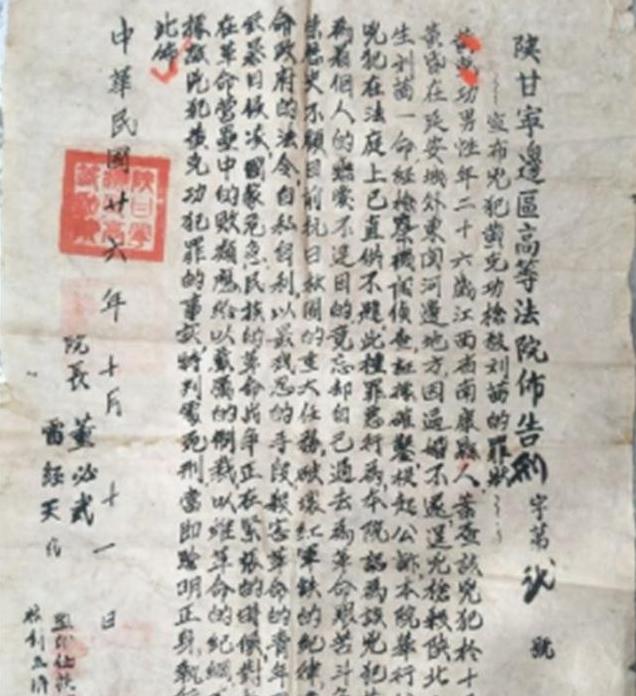 陝甘寧邊區高等法院佈告 刑字第貳號
宣布兇犯黃克功槍殺刘茴的罪狀
克功男性年二十六歲江西省南康縣人，業查該兇犯於十
黃昏在延安城外東関河邊地方因逼婚不遂逞兇槍殺陝北
生刘茴一命経檢察機関偵查証據確鑿提起公訴本院舉行
兇犯在法庭上已直供不諱，此種罪惡行為，本院認為該兇犯
為着個人的戀愛不遂目的竟忘却自己過去為革命艱苦斗争
榮歷史不顧目前抗日救國的重大任務，破壞紅軍鉄的紀律，
命政府的法令，自私自利，以最残忍的手段殺害革命的青年
暴日侵凌，國家危急，民族的革命战争正在緊張的時候對
在革命營壘中的敗類應給以嚴厲的制裁以維革命的紀綱
據該兇犯黃克功犯罪的事实，特判處死刑，當即驗明正身，執行
此佈
中華民國廿六年十月十一日
院長 董必武
雷経天 代